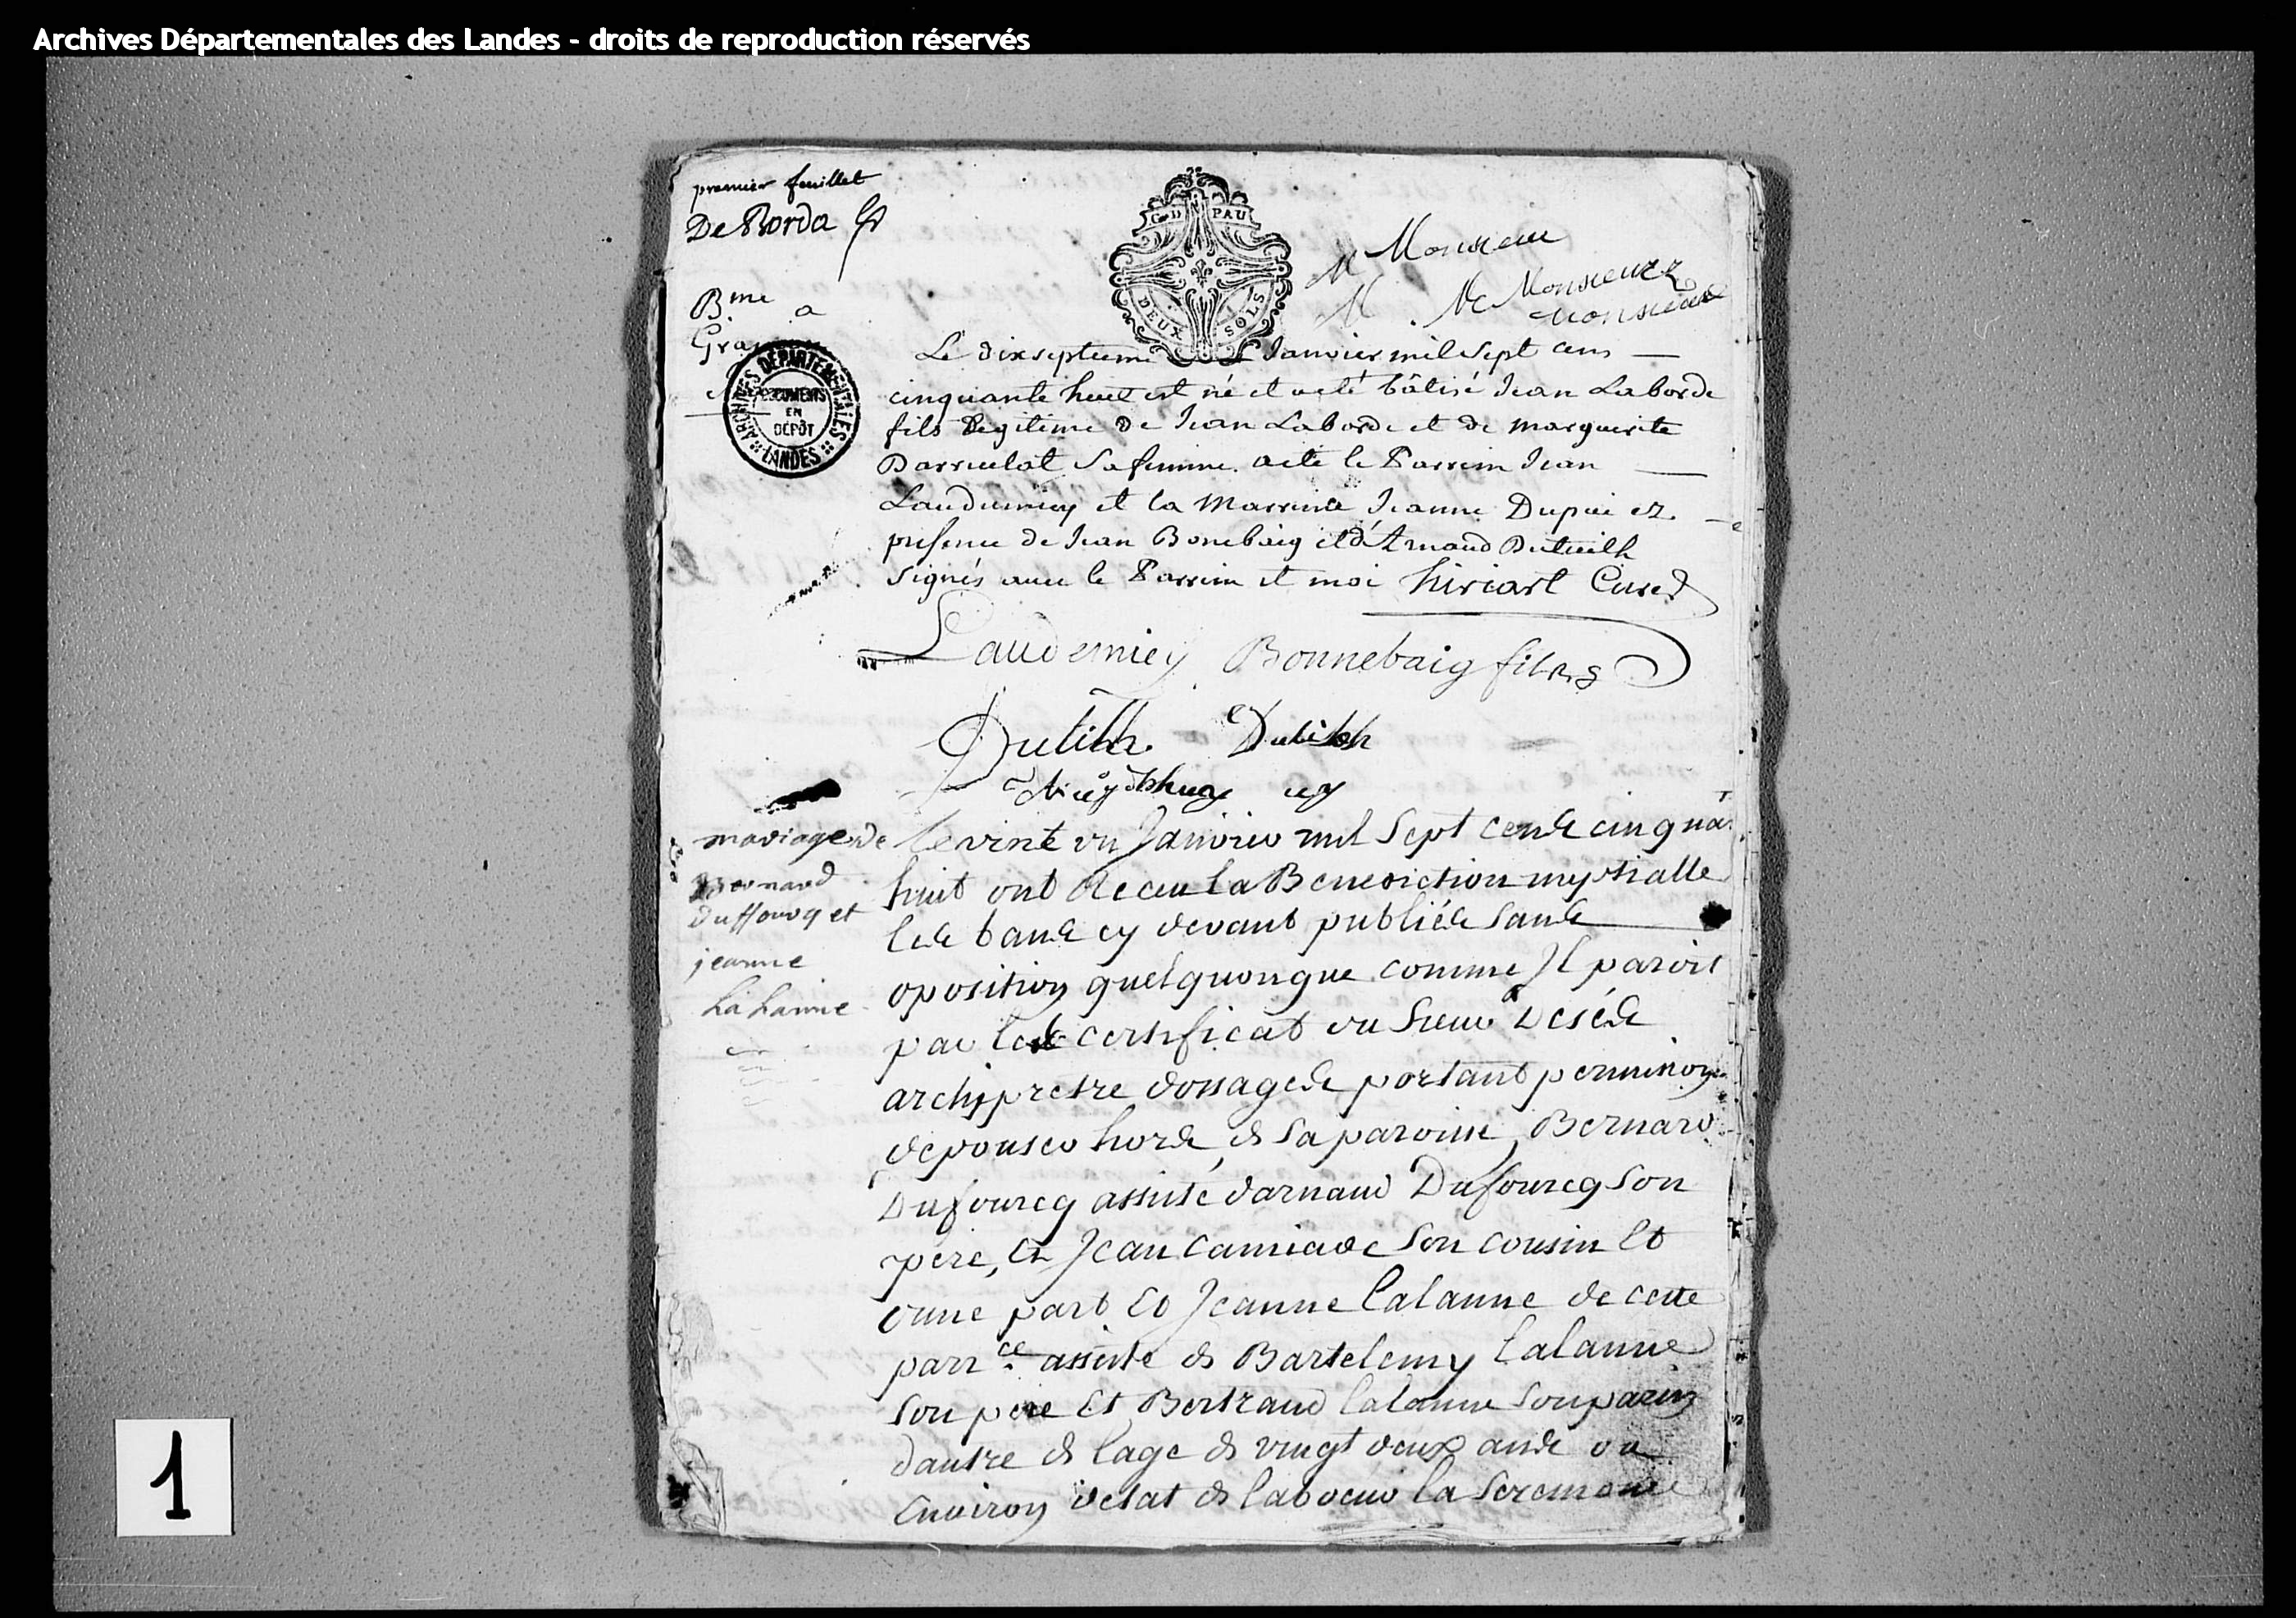 Archives Départementales des Landes - droits de reproduction réservés
premier feuillet
De Borda
G D PAU
DEUX SOLS
M Monsieur
M Mc Monsieurz
Monsieur
Bme a
ARCHIVES DÉPARTEMENTALES
DOCUMENTS
EN
DÉPÔT
LANDES
Le dixseptieme Janvier mil Sept cens
cinquante huit est né et a eté bâtisé Jean Laborde
fils legitime de Jean Laborde et de marguerite
Darriulat Sa femme. a eté le Parrein Jean
Laudumiey et la Marreine Jeanne Dupui ez
presence de Jean Bonebaig et d'Arnaud Duteilh
Signés avec le Parrein et moi hiriart Curé
Laudemiey Bonnebaig fils
Dutilh Dutilh
mariage de
Bernard
duffourq et
jeanne
Lalanne
le vint un Janvier mil Sept cens cinquā
huit ont Receu la Benediction nuptialle
les bans cy devant publiés sans
oposition quelquonque comme Jl paroit
par les certificat du Sieur Desés
archipretre dossages portant permission
depouser hors de Sa paroisse, Bernard
Dufourcq assisté darnaud Dufourcq Son
pere, et Jean Camiade Son cousin Et
dune part Et Jeanne Lalanne de cette
parrce. assiste de Bartelemy Lalanne
Son pere Et Bertrand Lalanne Son parin
dautre de lage de vingt deux ans ou
Environ detat de laboeur la Seremonie
1